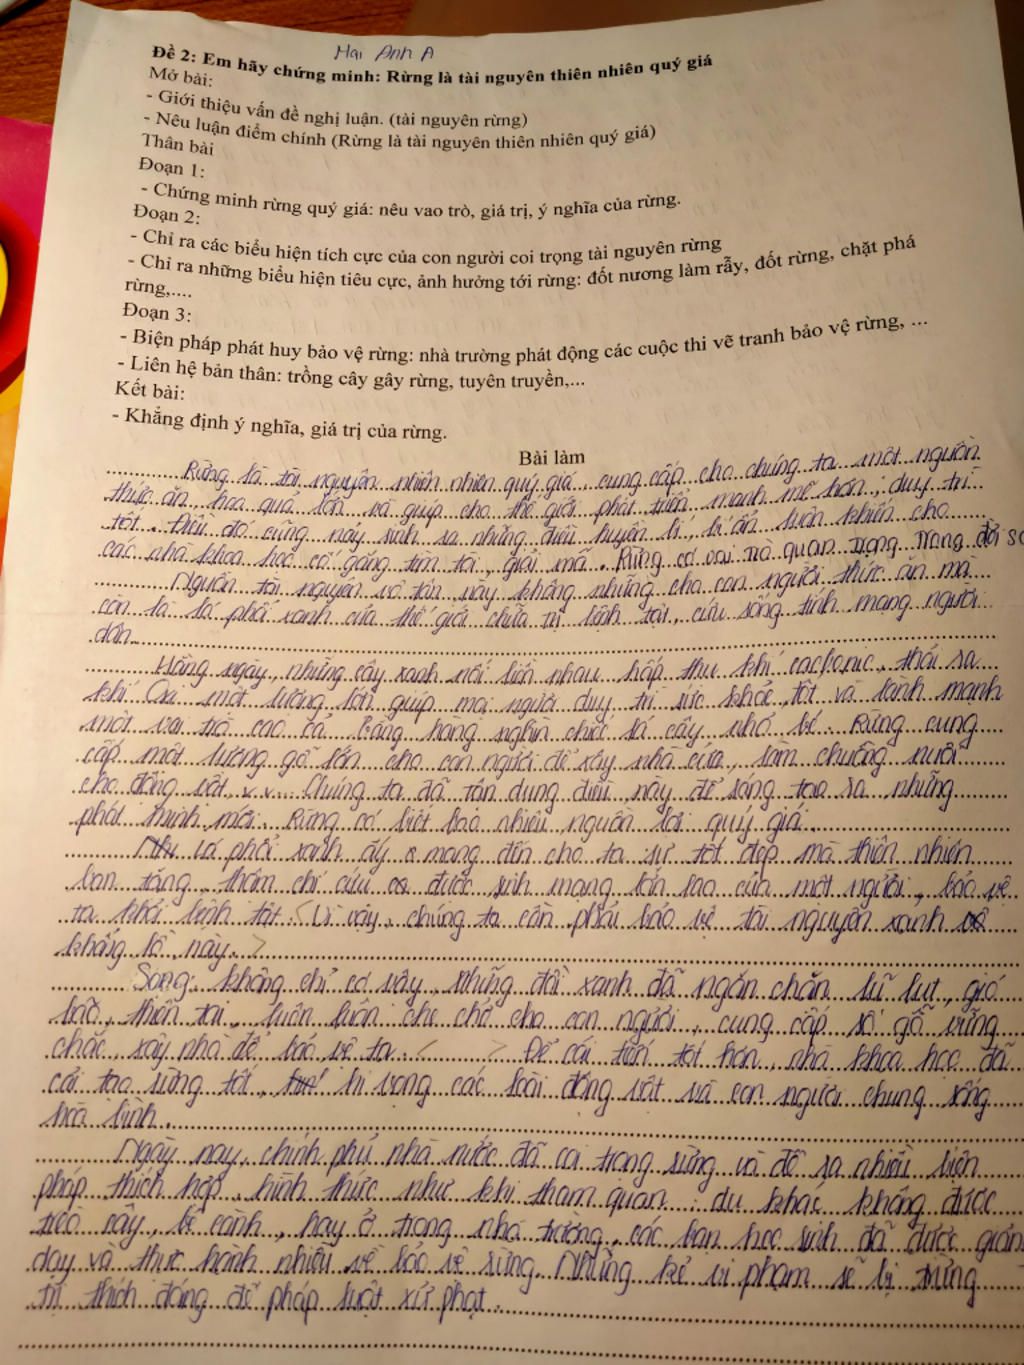 Mai Anh A
Đề 2: Em hãy chứng minh: Rừng là tài nguyên thiên nhiên quý giá
Mở bài:
- Giới thiệu vấn đề nghị luận. (tài nguyên rừng)
- Nêu luận điểm chính (Rừng là tài nguyên thiên nhiên quý giá)
Thân bài
Đoạn 1:
- Chứng minh rừng quý giá: nêu vao trò, giá trị, ý nghĩa của rừng.
Đoạn 2:
- Chỉ ra các biểu hiện tích cực của con người coi trọng tài nguyên rừng
- Chỉ ra những biểu hiện tiêu cực, ảnh hưởng tới rừng: đốt nương làm rẫy, đốt rừng, chặt phá
rừng,....
Đoạn 3:
- Biện pháp phát huy bảo vệ rừng: nhà trường phát động các cuộc thi vẽ tranh bảo vệ rừng, ...
- Liên hệ bản thân: trồng cây gây rừng, tuyên truyền,...
Kết bài:
- Khẳng định ý nghĩa, giá trị của rừng.
Bài làm
Rừng là tài nguyên nhiên nhiên quý giá, cung cấp cho chúng ta một nguồn
thức ăn, hoa quả lớn và giúp cho thế giới phát triển mạnh mẽ hơn, duy trì
tốt. Điều đó cũng nảy sinh ra những điều huyền bí, bí ẩn luôn khiến cho
các nhà khoa học cố gắng tìm tòi, giải mã. Rừng có vai trò quan trọng trong đời số
Nguồn tài nguyên vô tận này không những cho con người thức ăn mà
còn là lá phổi xanh của thế giới chữa trị bệnh tật, cứu sống tính mạng người
dân.
Hằng ngày, những cây xanh nối liền nhau hấp thụ khí cacbonic, thải ra
khí Oxi một lượng lớn giúp mọi người duy trì sức khoẻ tốt và lành mạnh
một vai trò cao cả bằng hàng nghìn chiếc lá cây nhỏ bé. Rừng cung
cấp một lượng gỗ lớn cho con người để xây nhà cửa, làm chuồng nuôi
cho động vật, v.v... Chúng ta đã tận dụng điều này để sáng tạo ra những
phát minh mới. Rừng có biết bao nhiêu nguồn lợi quý giá.
lá phổi xanh ấy mang đến cho ta sự tốt đẹp mà thiên nhiên
ban tặng, thậm chí cứu được sinh mạng lớn lao của một người, bảo vệ
ta khỏi bệnh tật. <Vì vậy, chúng ta cần phải bảo vệ tài nguyên xanh
khổng lồ này.>
Song, không chỉ có vậy, những đồi xanh đã ngăn chặn lũ lụt, gió
bão, thiên tai, luôn luôn che chở cho con người, cung cấp số gỗ vững
chắc, xây nhà để bảo vệ ta. < > Để cải tiến tốt hơn, nhà khoa học đã
cải tạo rừng tốt, hi vọng các loài động vật và con người chung sống
hoà bình.
Ngày nay, chính phủ nhà nước đã coi trọng rừng và đề ra nhiều biện
pháp thích hợp, hình thức như khi tham quan: du khách không được
trèo cây, bẻ cành, hay ở trong nhà trường, các bạn học sinh đã được giản
dạy và thực hành nhiều về bảo vệ rừng. Những kẻ vi phạm sẽ bị trừng
trị thích đáng để pháp luật xử phạt.